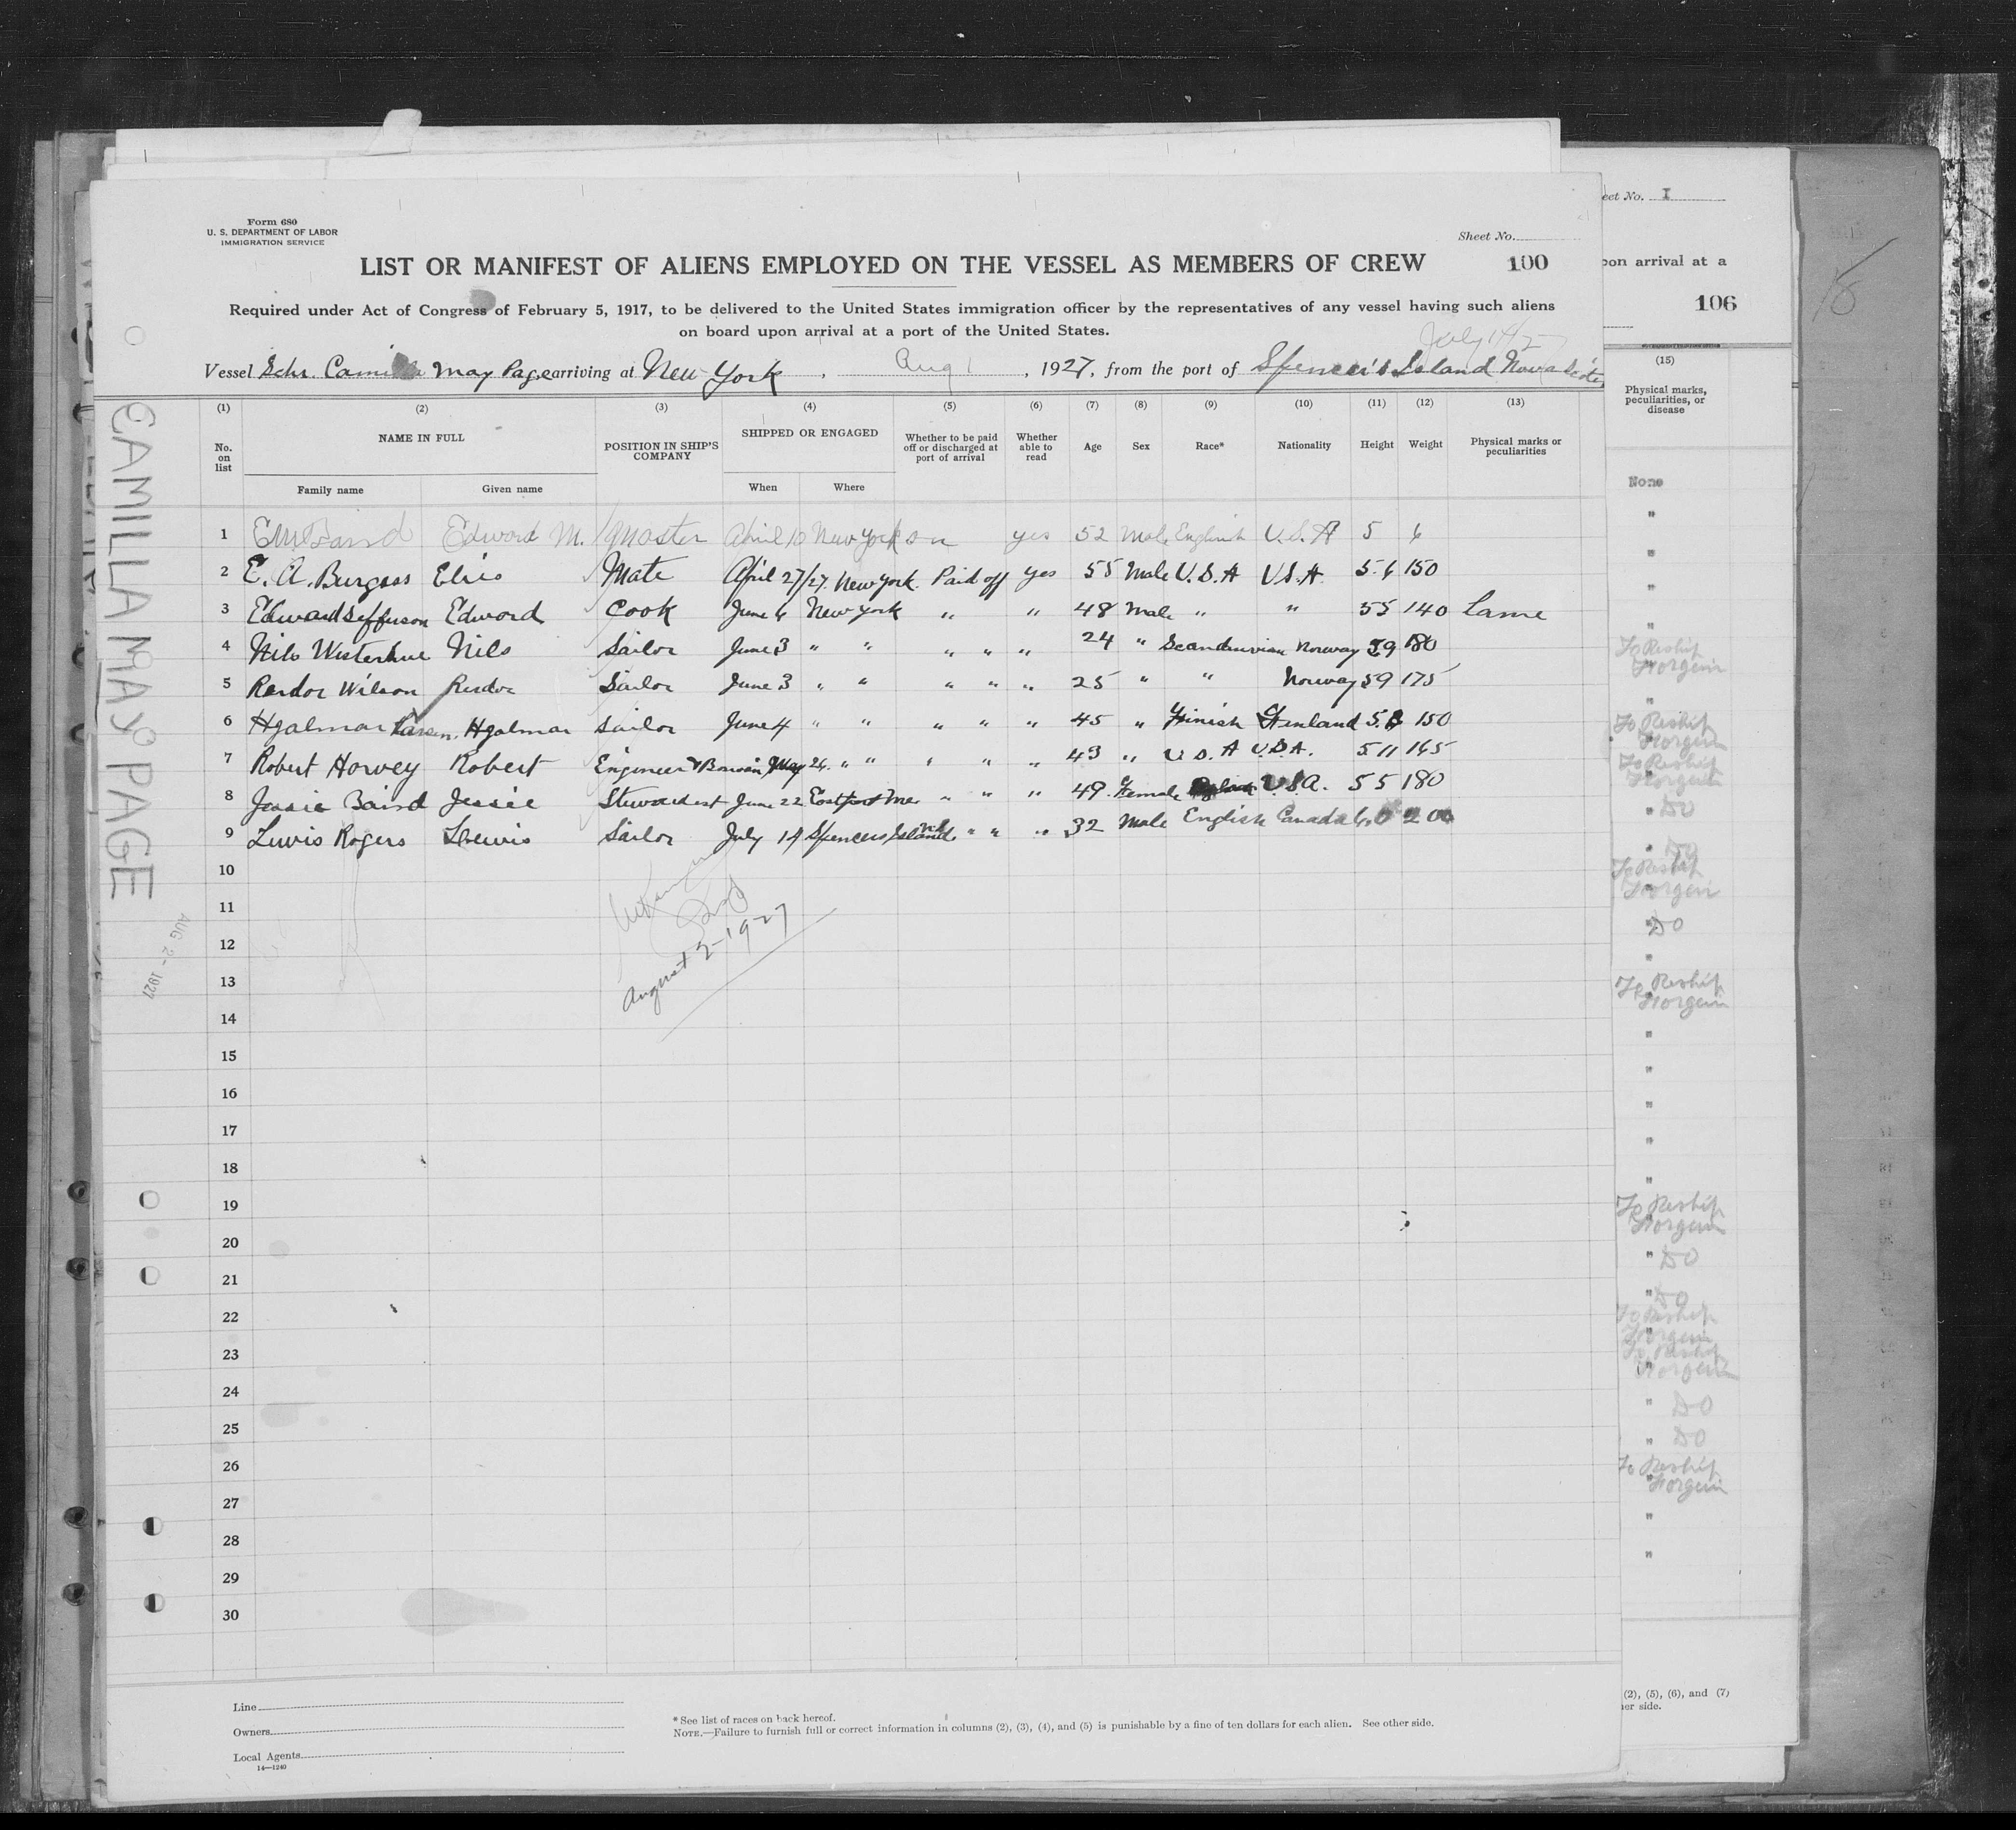 Form 680
U. S. DEPARTMENT OF LABOR
IMMIGRATION SERVICE
Sheet No.
LIST OR MANIFEST OF ALIENS EMPLOYED ON THE VESSEL AS MEMBERS OF CREW 100
Required under Act of Congress of February 5, 1917, to be delivered to the United States immigration officer by the representatives of any vessel having such aliens
on board upon arrival at a port of the United States.
July 14/27
Vessel Schr. Camilla May Page arriving at New York, Aug 1, 1927, from the port of Spencer's Island Nova Scotia
(1) (2) (3) (4) (5) (6) (7) (8) (9) (10) (11) (12) (13)
No. on list NAME IN FULL Family name Given name POSITION IN SHIP'S COMPANY SHIPPED OR ENGAGED When Where Whether to be paid off or discharged at port of arrival Whether able to read Age Sex Race* Nationality Height Weight Physical marks or peculiarities
1 EM Baird Edward M. Master April 10 New York on yes 52 Male English U.S.A 5 6
2 E. A. Burgess Elvis Mate April 27/27. New York. Paid off yes 55 Male U.S.A U.S.A. 5.6 150
3 Edward Jefferson Edward Cook June 6 New York " " 48 Male " " 55 140 Lame
4 Nils Nils Sailor June 3 " " " " " 24 " Scandinavian Norway 59 180
5 Reidor Wilson Reidor Sailor June 3 " " " " " 25 " " Norway 59 175
6 Hjalmar Larsen. Hjalmar Sailor June 4 " " " " " 45 " Finish Finland 5.8 150
7 Robert Harvey Robert Engineer May 26. " " " " " 43 " U.S.A U.S.A. 5 11 165
8 Jessie Baird Jessie Stewardest June 22 Eastport Me. " " " 49. Female U.S.A. 5 5 180
9 Lewis Rogers Lewis Sailor July 14 Spencers Island N.S. " " " 32 Male English Canada 6.0 200
10
11
12
13
14
15
16
17
18
19
20
21
22
23
24
25
26
27
28
29
30
August 2-1927
CAMILLA MAY PAGE
AUG 2 - 1927
Line
Owners
Local Agents
14—1240
* See list of races on back hereof.
NOTE.—Failure to furnish full or correct information in columns (2), (3), (4), and (5) is punishable by a fine of ten dollars for each alien. See other side.
eet No. I
pon arrival at a
106
(15)
Physical marks, peculiarities, or disease
None
"
"
"
"
To Reship Foreign
"
To Reship Foreign
To Reship Foreign
" DO
" DO
To Reship Foreign
DO
"
To Reship Foreign
"
"
"
"
"
To Reship Foreign
" DO
" DO
To Reship Foreign
To Reship Foreign
" DO
" DO
To Reship Foreign
"
"
(2), (5), (6), and (7)
er side.
18